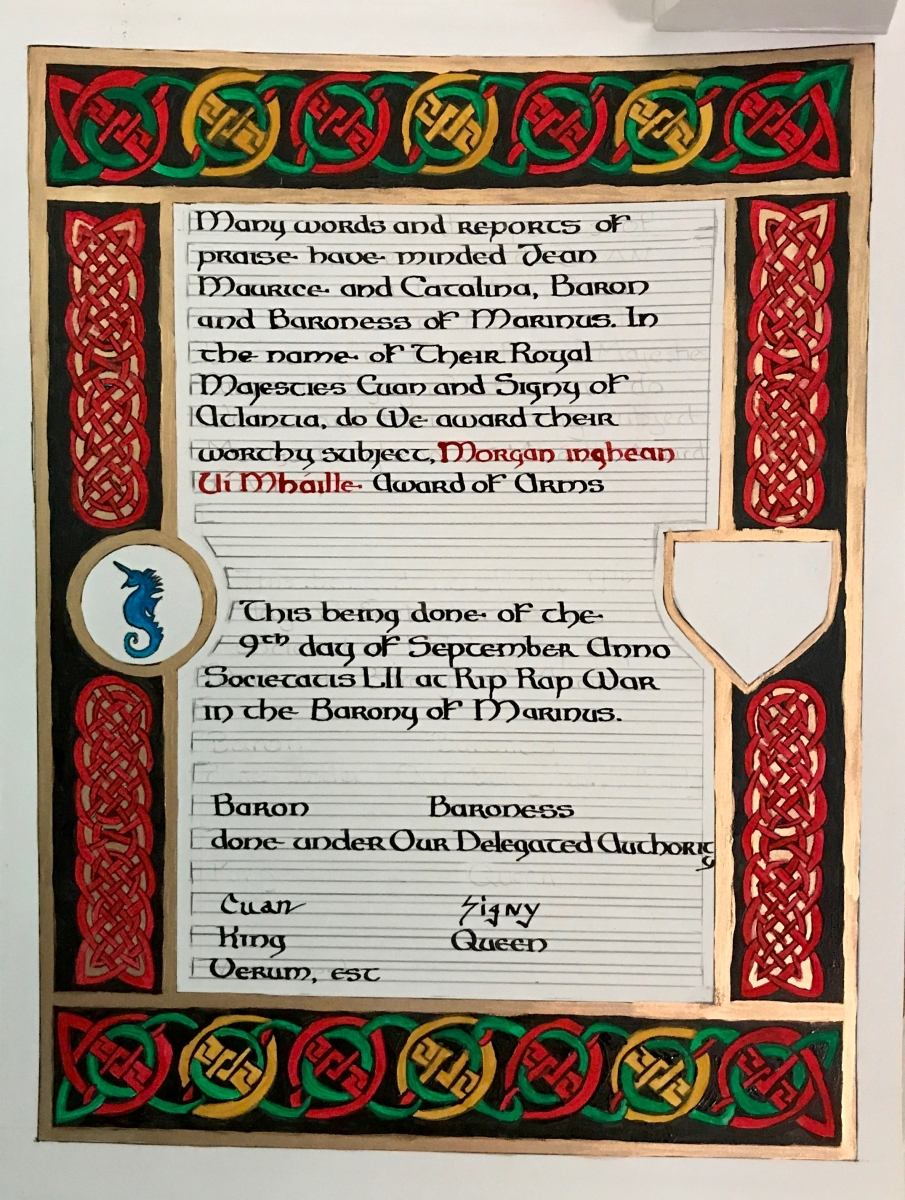 Many words and reports of
praise have minded Jean
Maurice and Catalina, Baron
and Baroness of Marinus. In
the name of Their Royal
Majesties Cuan and Signy of
Atlantia, do We award their
worthy subject, Morgan inghean
Uí Mháille Award of Arms
This being done of the
9th day of September Anno
Societatis LII at Rip Rap War
in the Barony of Marinus.
Baron Baroness
done under Our Delegated Authority
Cuan Signy
King Queen
Verum, est